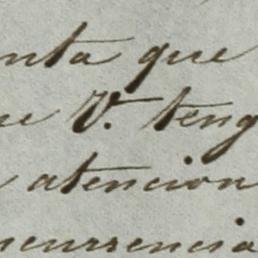 nta que
ue V. teng
atencion
ncurrencia